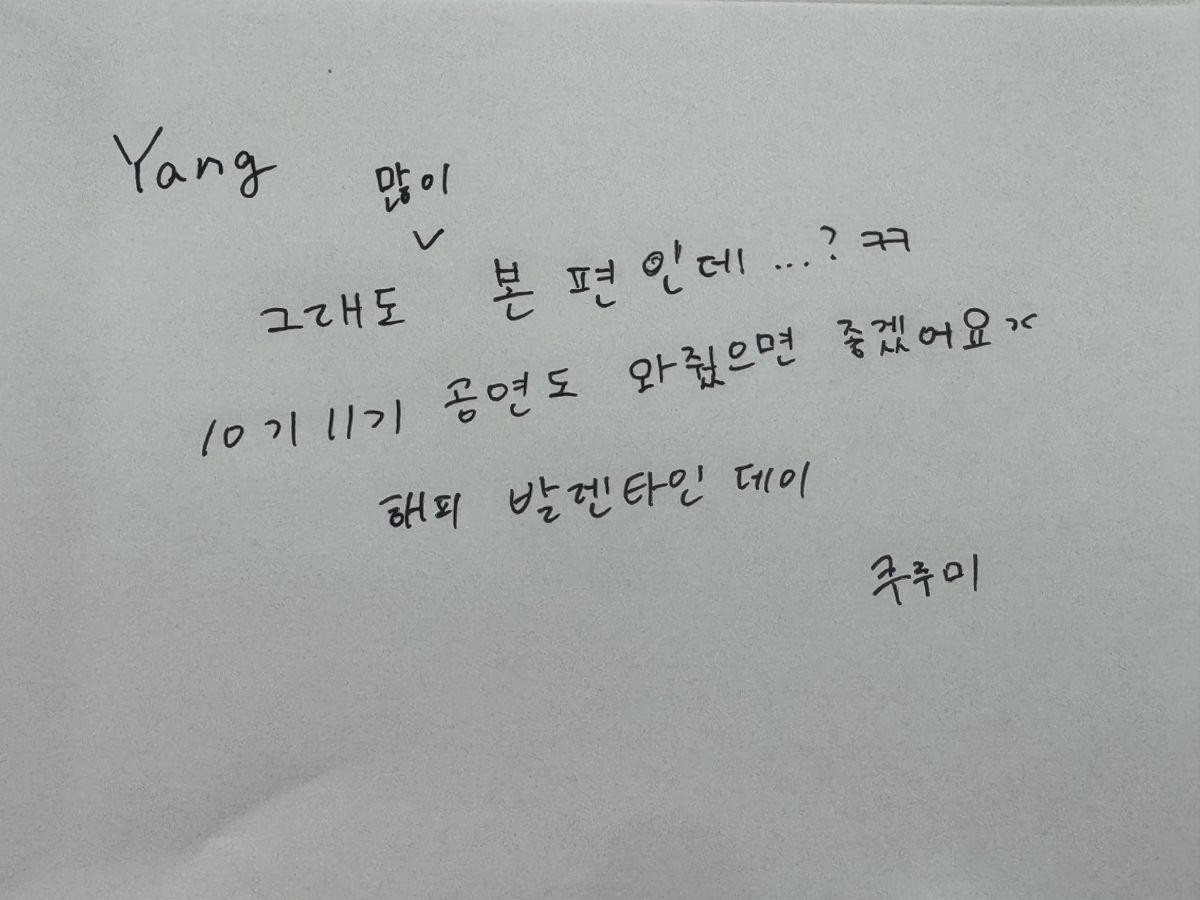 Yang
그래도 많이 본 편인데...? ㅋㅋ
10기 11기 공연도 와줬으면 좋겠어요^^
해피 발렌타인 데이
쿠루미